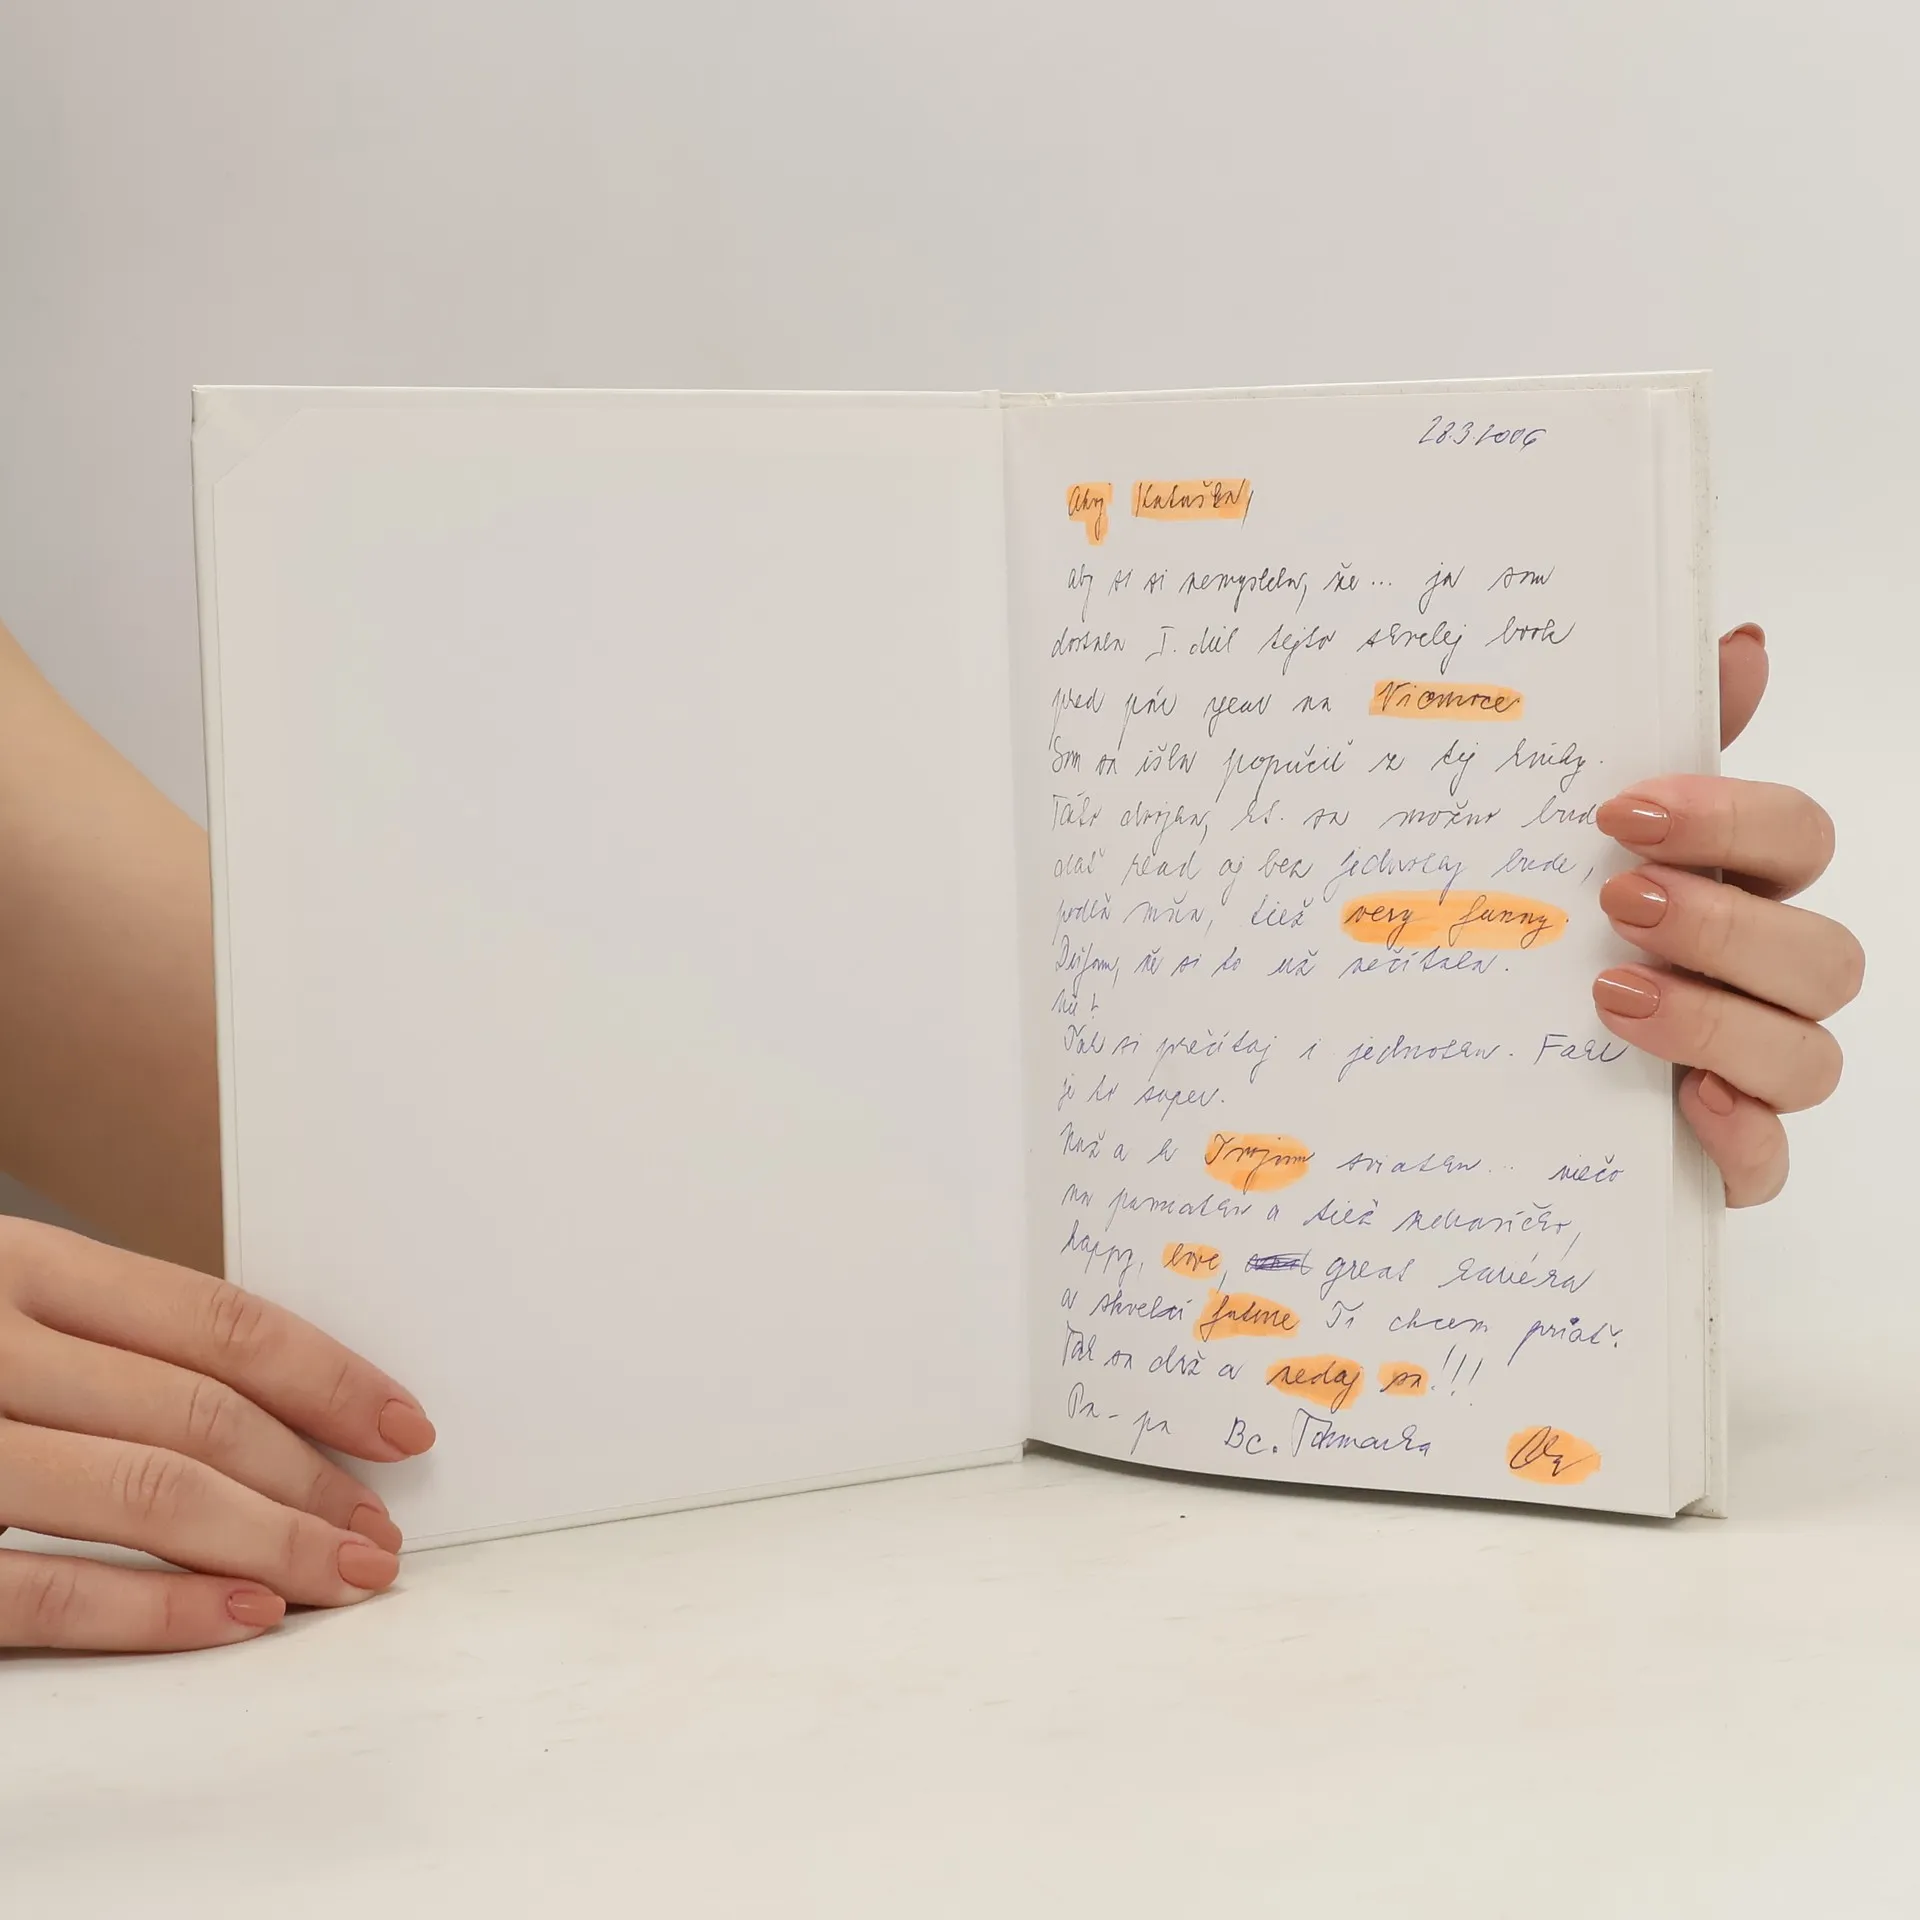 28.3.2006
Ahoj Katuška,
aby si si nemyslela, že... ja som
dostala I. diel tejto skvelej book
pred pár year na Vianoce
Som sa išla popučiť z tej knihy.
Táto dvojka, kt. sa možno bud
dať read aj bez jednotky bude,
podľa mňa, tiež very funny.
Dúfam, že si to už nečítala.
Nie?
Tak si prečítaj i jednotku. Fakt
je to super.
Nuž a k Tvojom sviatku... niečo
na pamiatku a tiež
happy, love, great kariéra
a skvelú future Ti chcem priať.
Tak sa drž a nedaj sa!!!
Pa-pa Bc.